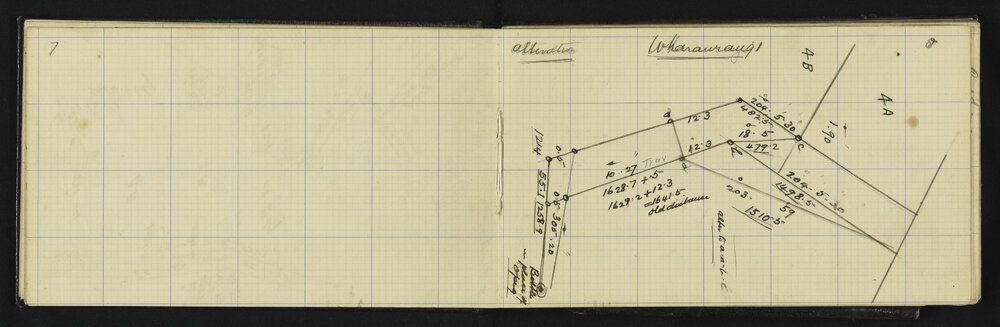 7
8
Wharaurangi
4B
4A
1.90
204.5.30
482.5
18.5
479.2
12.3
a
12.3
b
c
d
10..27 Trav
1628.7 + .5
1629.2 + 12.3
= 1641.5
old distance
204.5.30
1498.5
203.59
1510.5
1214
0.5
55.1
1258.9
0.5
305.20
Bottle